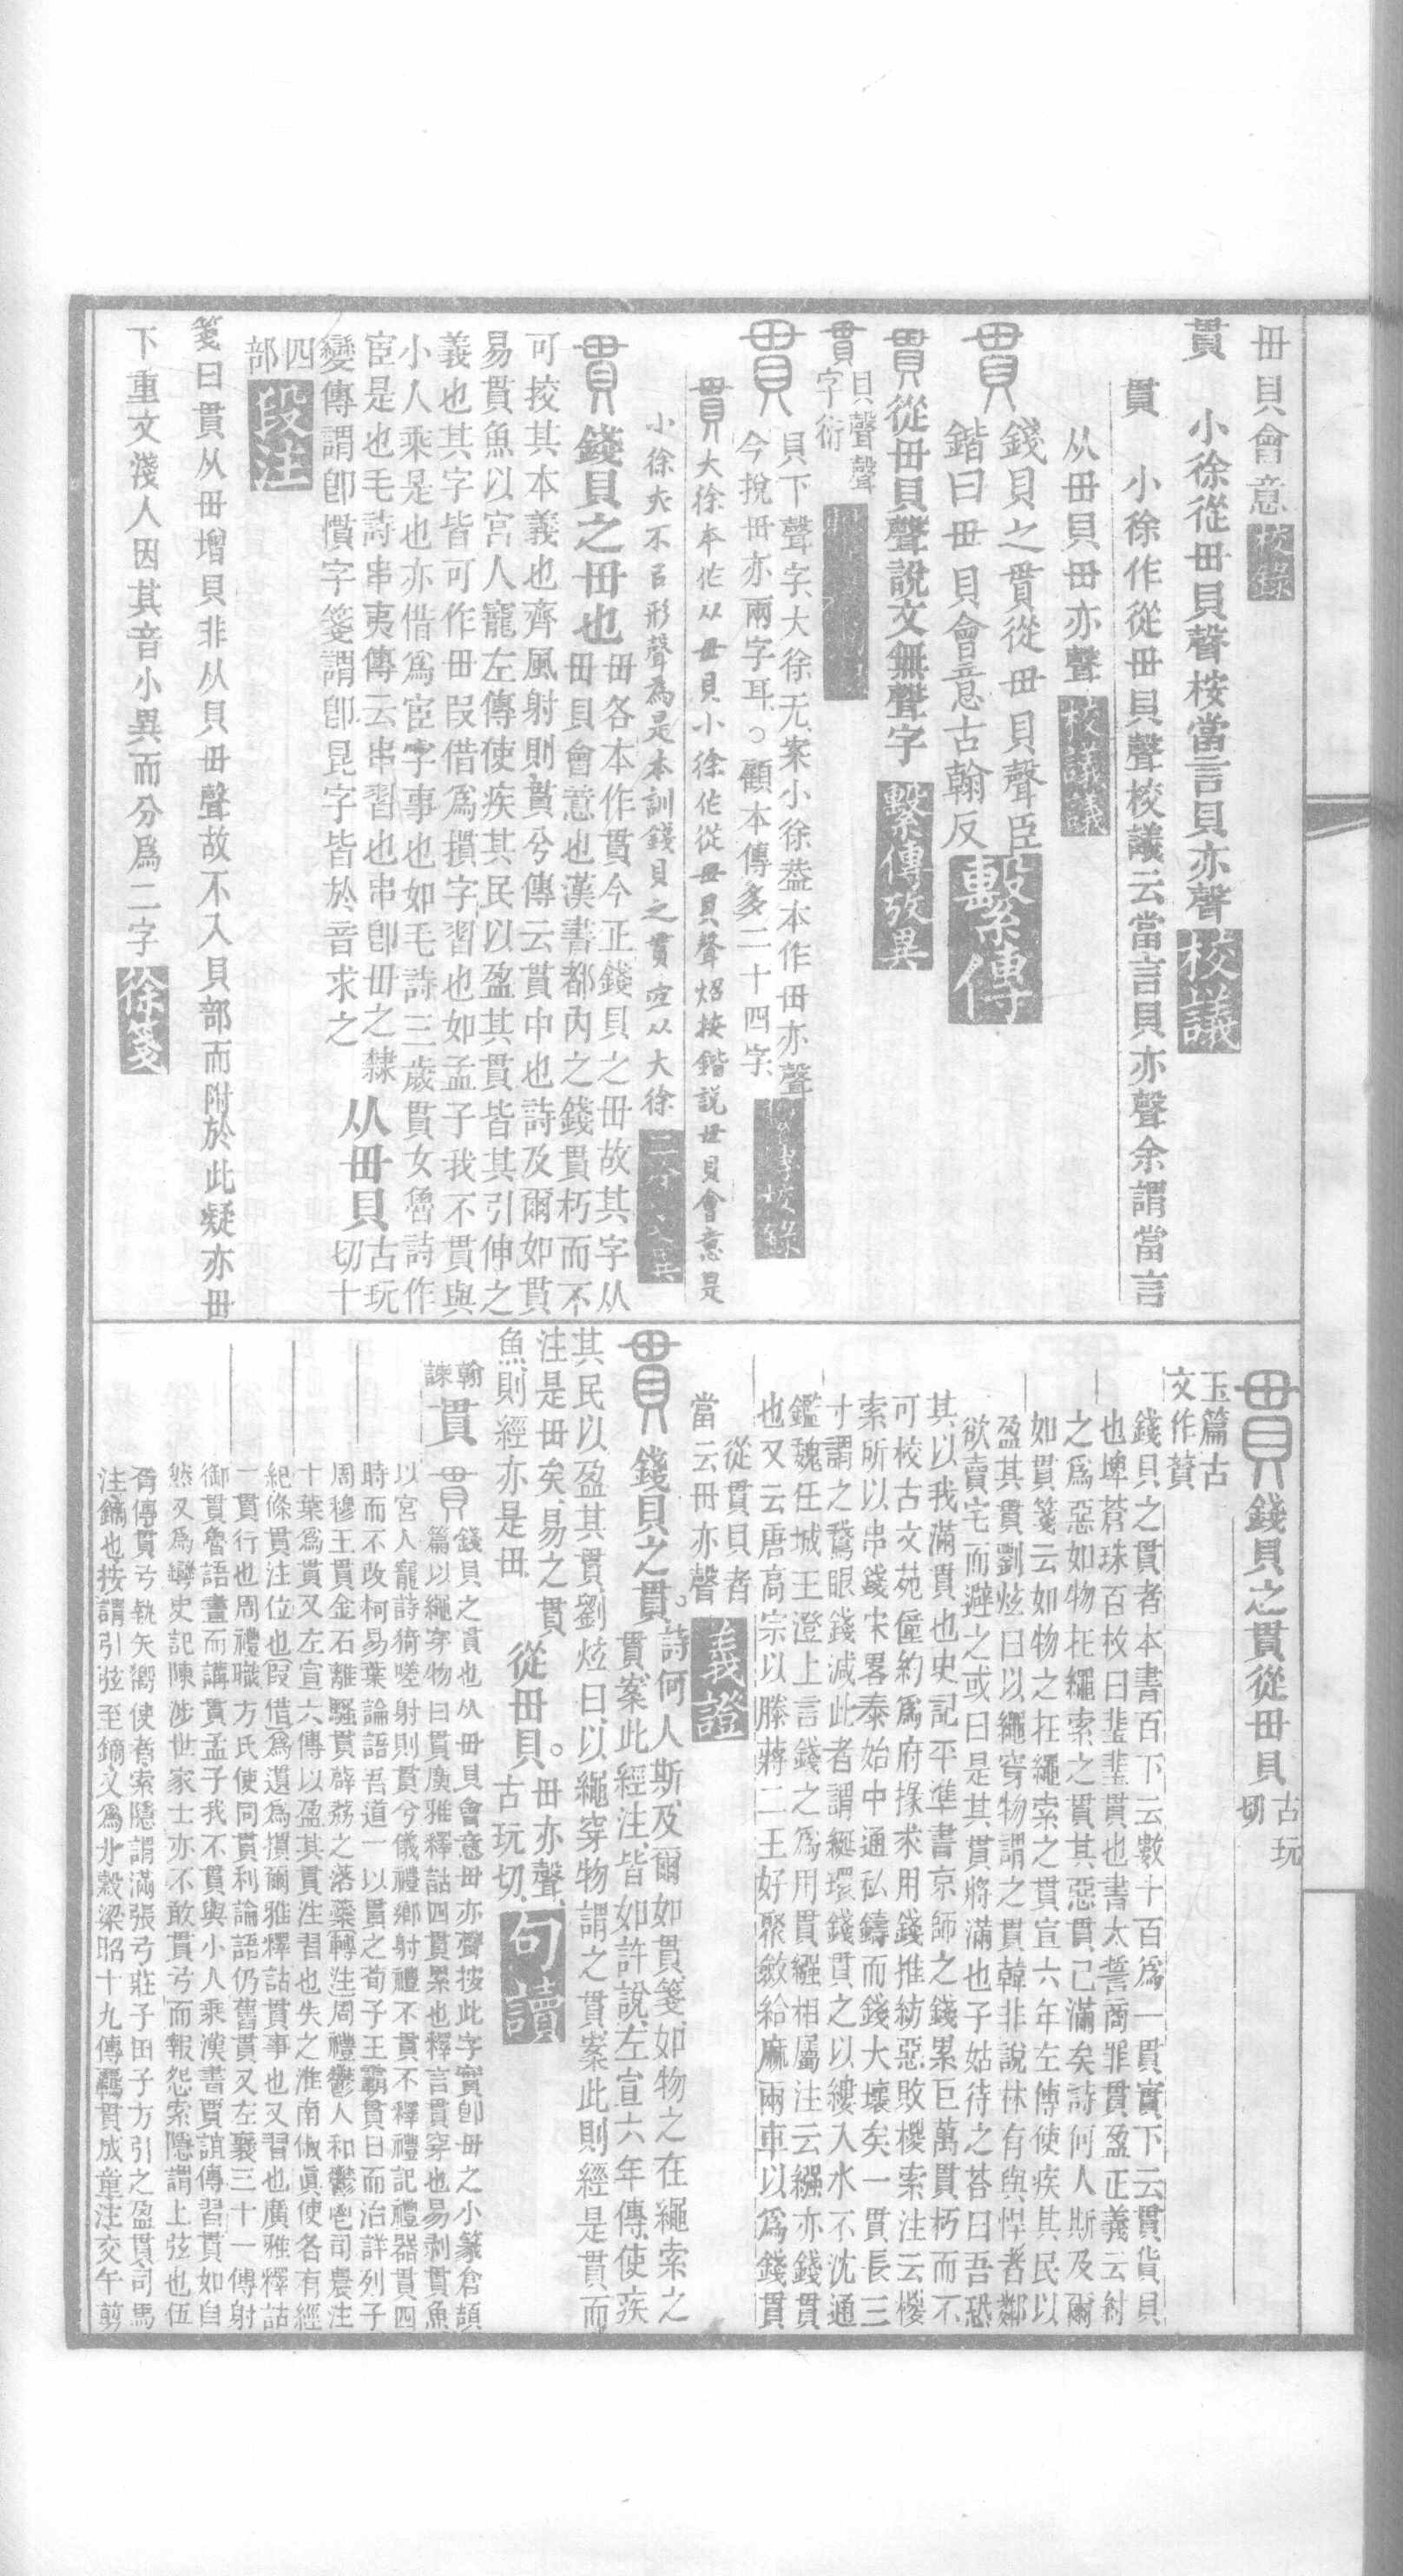 毌貝會意校錄
貫　小徐從毌貝聲桉當言貝亦聲校議
貫　小徐作從毌貝聲校議云當言貝亦聲余謂當言
从毌貝毌亦聲校議議
貫　錢貝之貫從毌貝聲臣
鍇曰毌貝會意古翰反繫傳
貫從毌貝聲說文無聲字繫傳攷異
貫字衍
貝聲聲
貫　貝下聲字大徐无案小徐葢本作毌亦聲
今挩毌亦兩字耳○顧本傳多二十四字
貫大徐本作从毌貝小徐作從毌貝聲炤按鍇説毌貝會意是
小徐夫不㠯形聲為是本訓錢貝之貫宜从大徐
貫　錢貝之毌也毌各本作貫今正錢貝之毌故其字从
毌貝會意也漢書都內之錢貫朽而不
可挍其本義也齊風射則貫兮傳云貫中也詩及爾如貫
易貫魚以宮人寵左傳使疾其民以盈其貫皆其引伸之
義也其字皆可作毌叚借爲摜字習也如孟子我不貫與
小人乘是也亦借爲宦字事也如毛詩三歲貫女魯詩作
宦是也毛詩串夷傳云串習也串卽毌之隸
變傳謂卽慣字箋謂卽昆字皆於音求之　从毌貝古玩切十
四部段注
箋曰貫从毌增貝非从貝毌聲故不入貝部而附於此疑亦毌
下重文淺人因其音小異而分爲二字徐箋
貫　錢貝之貫從毌貝古玩切
玉篇古
文作貫
錢貝之貫者本書百下云數十百爲一貫實下云貫貨貝
也埤蒼珠百枚曰琲琲貫也書太誓商罪貫盈正義云紂
之爲惡如物在繩索之貫其惡貫已滿矣詩何人斯及爾
如貫箋云如物之在繩索之貫宣六年左傳使疾其民以
盈其貫劉炫曰以繩穿物謂之貫韓非說林有與悍者鄰
欲賣宅而避之或曰是其貫將滿也子姑待之荅曰吾恐
其以我滿貫也史記平準書京師之錢累巨萬貫朽而不
可校古文苑僮約爲府掾求用錢推紡惡敗㯶索注云㯶
索所以串錢宋畧泰始中通私鑄而錢大壞矣一貫長三
寸謂之鵞眼錢減此者謂綖環錢貫之以縷入水不沈通
鑑魏任城王澄上言錢之爲用貫繦相屬注云繦亦錢貫
也又云唐高宗以滕蔣二王好聚斂給麻兩車以爲錢貫
從貫貝者
當云毌亦聲義證
貫　錢貝之貫。詩何人斯、及爾如貫、箋、如物之在繩索之
貫、案此經注、皆如許說、左宣六年傳、使疾
其民以盈其貫、劉炫曰、以繩穿物謂之貫、案此則經是貫而
注是毌矣、易之貫
魚、則經亦是毌　從毌貝。毌亦聲、古玩切、句讀
翰諫　貫
貫　錢貝之貫也从毌貝會意毌亦聲按此字實卽毌之小篆倉頡
篇以繩穿物曰貫廣雅釋詁四貫累也釋言貫穿也易剥貫魚
以宮人寵詩猗嗟射則貫兮儀禮鄉射禮不貫不釋禮記禮器貫四
時而不改柯易葉論語吾道一以貫之荀子王霸貫日而治詳列子
周穆王貫金石離騷貫薜荔之落蘂轉注周禮鬱人和鬱鬯司農注
十葉爲貫又左宣六傳以盈其貫注習也失之淮南俶眞使各有經
紀條貫注位也叚借爲遺爲摜爾雅釋詁貫事也又習也廣雅釋詁
一貫行也周禮職方氏使同貫利論語仍舊貫又左襄三十一傳射
御貫魯語晝而講貫孟子我不貫與小人乘漢書賈誼傳習貫如自
然又爲彎史記陳涉世家士亦不敢貫弓而報怨索隱謂上弦也伍
胥傳貫弓執矢嚮使者索隱謂滿張弓莊子田子方引之盈貫司馬
注鏑也按謂引弦至鏑又爲丱穀梁昭十九傳羈貫成童注交午翦